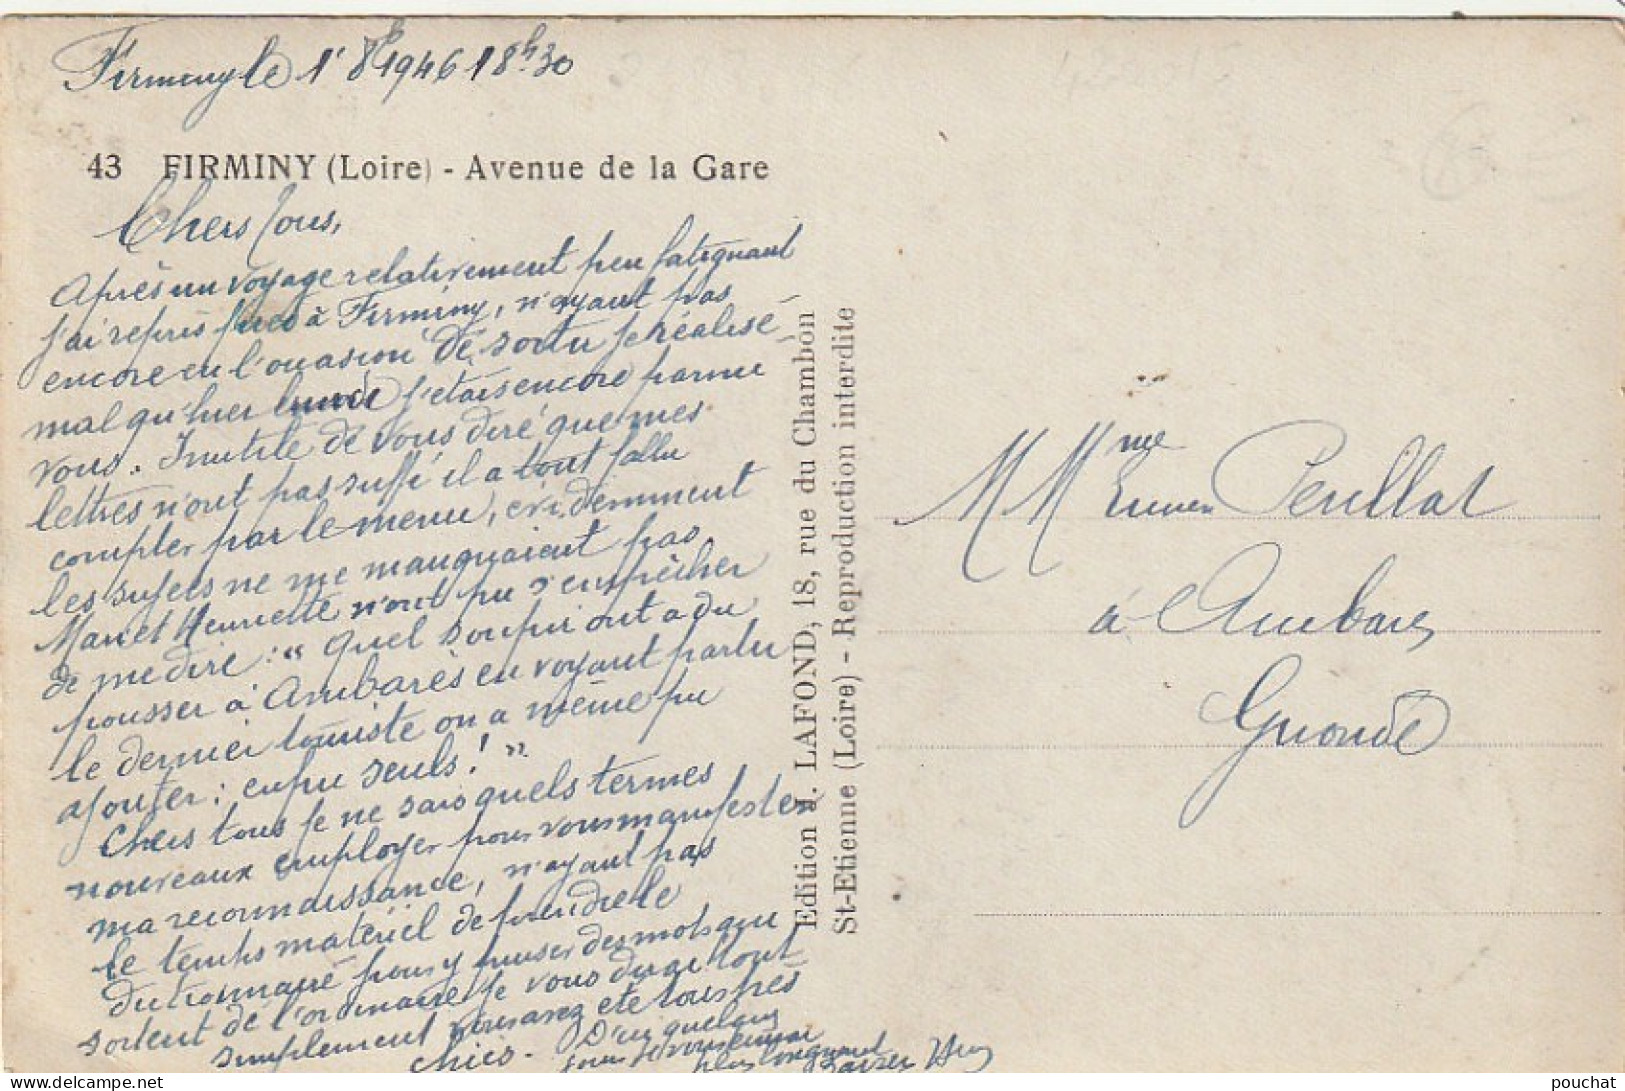 Firminy le 1r 8b 1946 18h30
43 FIRMINY (Loire) - Avenue de la Gare
Chers Tous,
Après un voyage relativement peu fatignant
j'ai repris à Firminy, n'ayant pas
encore eu l'occasion de sortir je réalise
mal qu'hier j'étais encore parmi
vous. Inutile de vous dire que mes
lettres n'ont pas suffi il a tout fallu
compter par le menu, évidemment
les sujets ne me manquaient pas
Marie et Henriette n'ont pu s'empêcher
de me dire : " Quel soupir ont a du
pousser à Ambarès en voyant partir
le dernier touriste on a même pu
ajouter : enfin seuls ! "
Chers tous je ne sais quels termes
nouveaux employer pour vous manifester
ma reconnaissance, n'ayant pas
le temps matériel de prendre le
dictionnaire pour y puiser des mots qui
sortent de l'ordinaire je vous dirai tout
simplement vous avez été tous très
chics. D'ici quelques
jours je vous
plus longuement
Baisers
Edition J. LAFOND, 18, rue du Chambon
St-Etienne (Loire) - Reproduction interdite
M Mme Perillat
à Ambarès
Gironde
pouchat